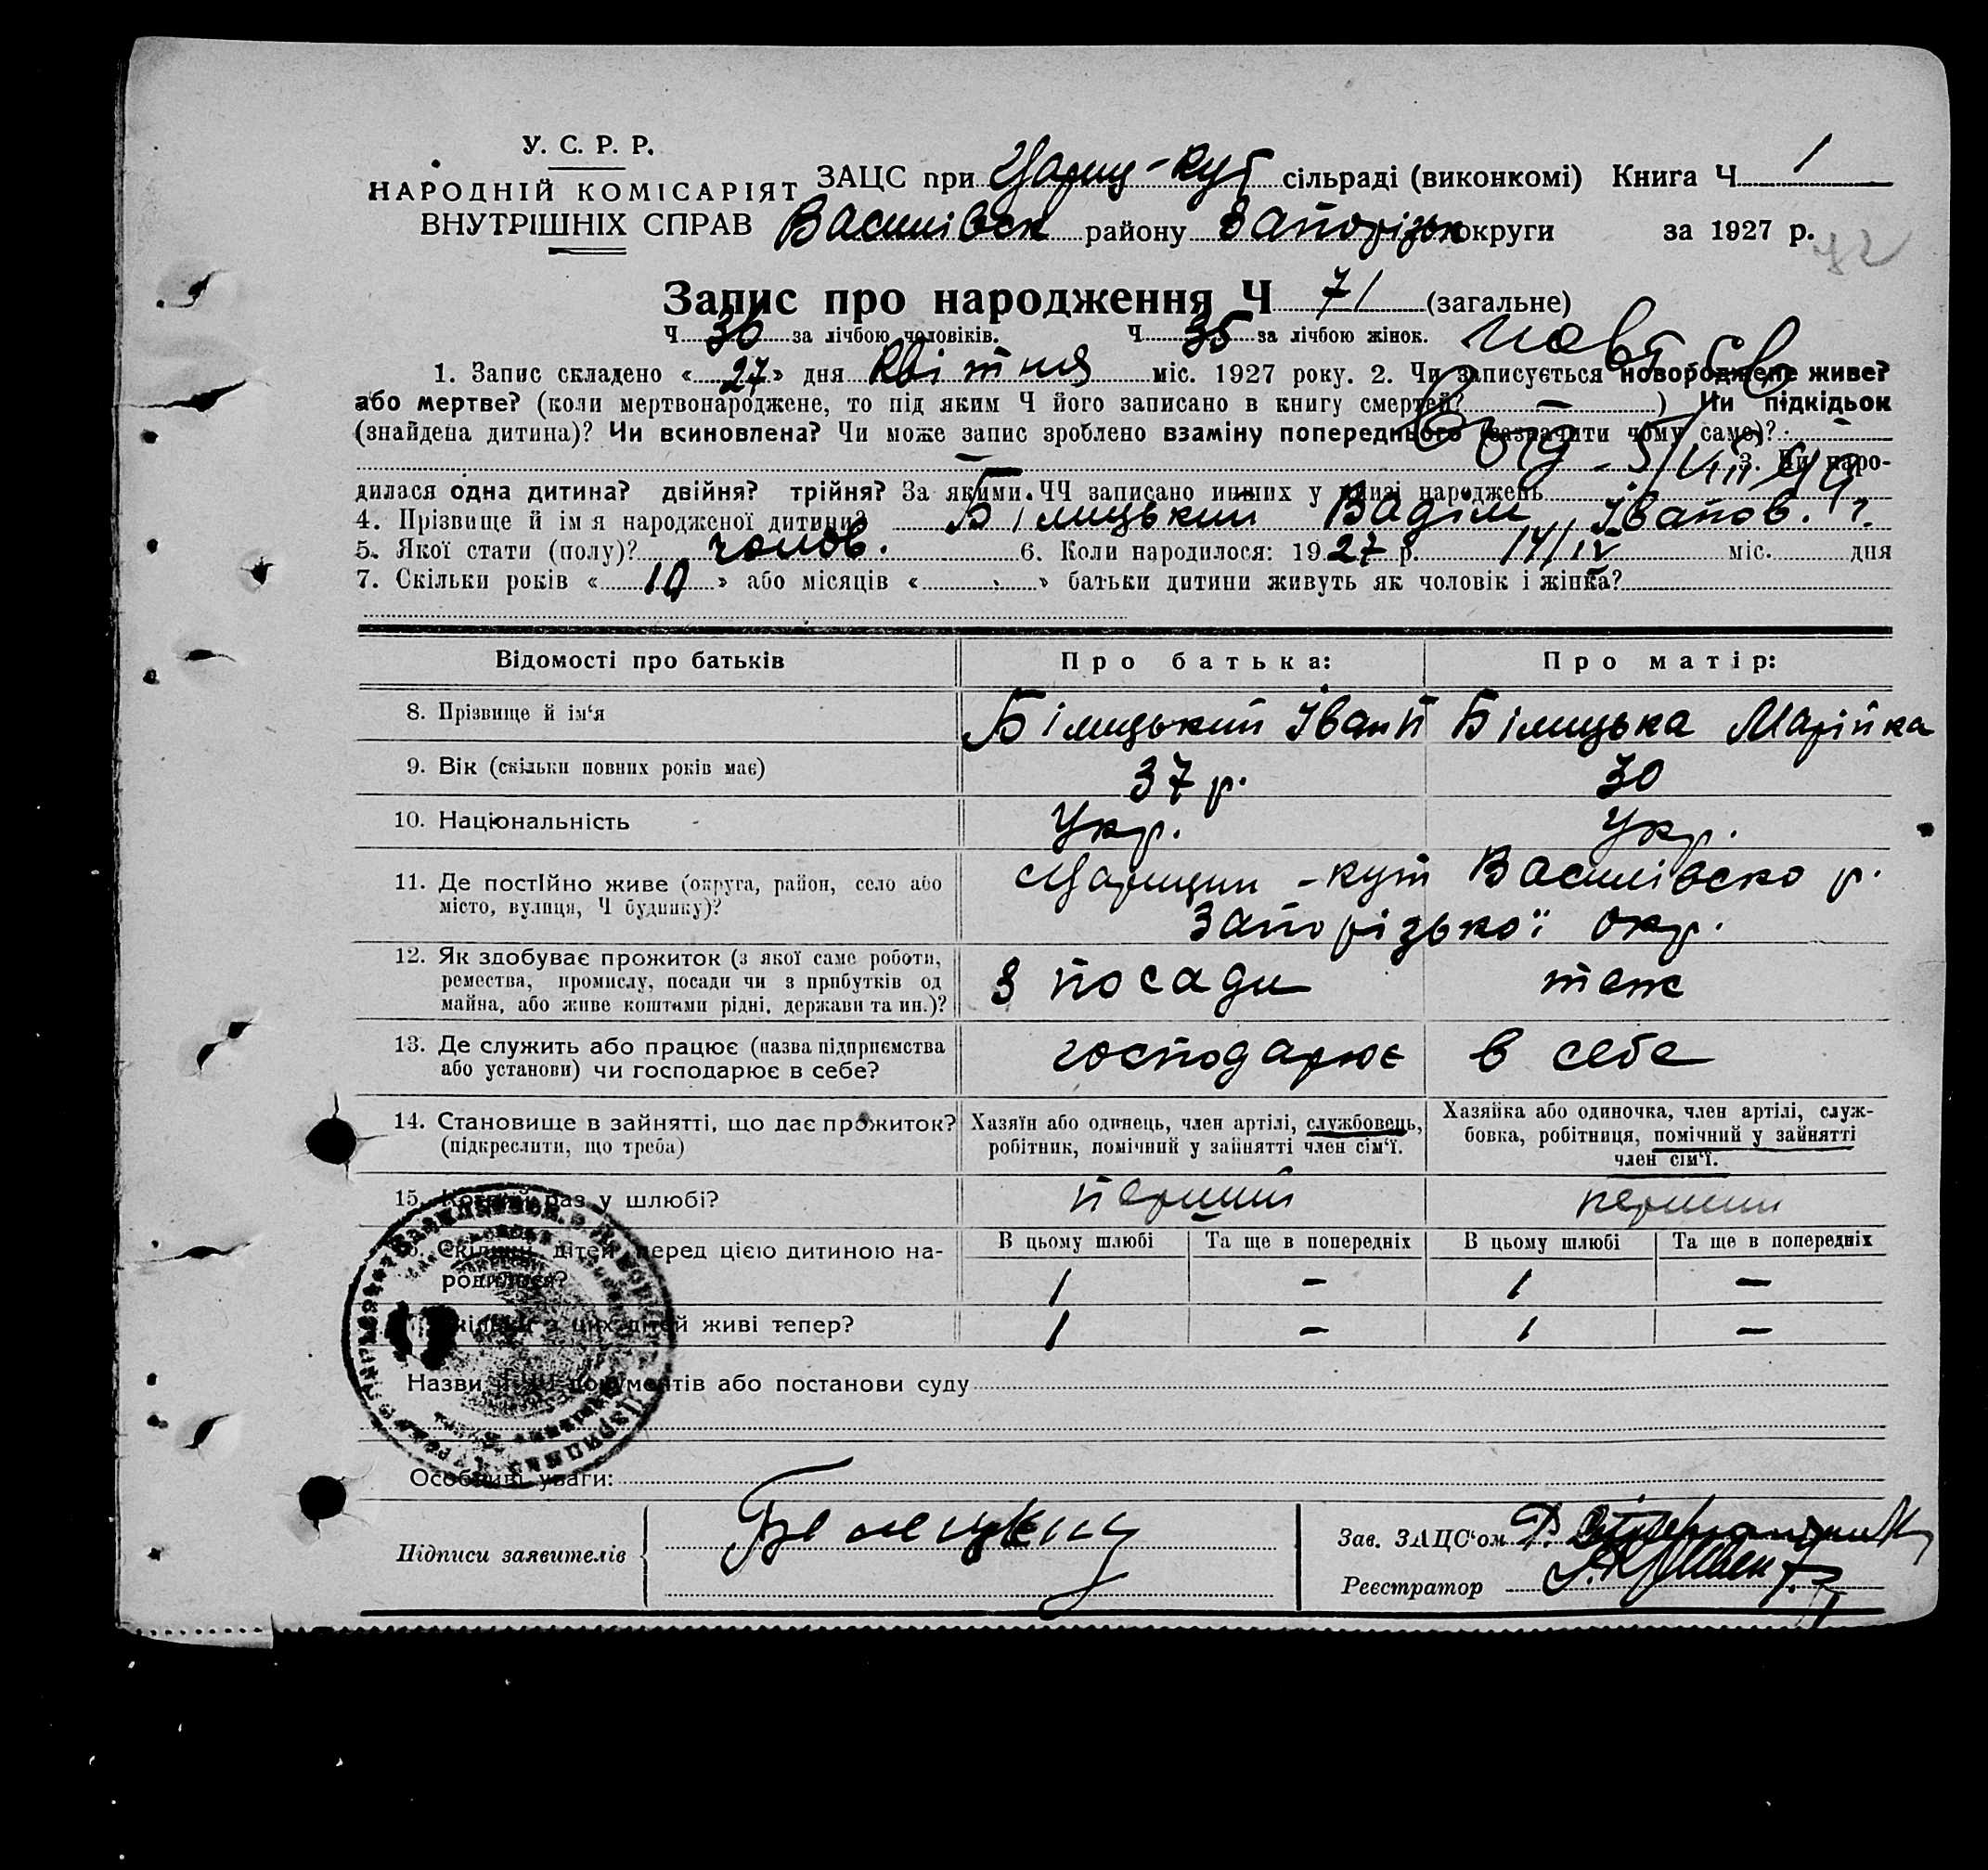 У. С. Р. Р.
НАРОДНІЙ КОМІСАРІЯТ
ВНУТРІШНІХ СПРАВ
ЗАЦС при Цариц-кут сільраді (виконкомі) Книга Ч 1
Василівськ району Запорізьк округи за 1927 р.
Запис про народження Ч 71 (загальне)
Ч 36 за лічбою чоловіків. Ч 35 за лічбою жінок.
1. Запис складено «27» дня квітня міс. 1927 року. 2. Чи записується новороджене живе?
або мертве? (коли мертвонароджене, то під яким Ч його записано в книгу смертей? — ) Чи підкідьок
(знайдена дитина)? Чи всиновлена? Чи може запис зроблено взаміну попереднього (зазначити чому саме)?
3. Чи наро-
дилася одна дитина? двійня? трійня? За якими ЧЧ записано инших у книзі народжень
4. Прізвище й ім я народженої дитини? Білицький Вадім Іванов.
5. Якої стати (полу)? чолов. 6. Коли народилося: 1927 р. 14/IV міс. дня
7. Скільки років «10» або місяців « » батьки дитини живуть як чоловік і жінка?
Відомості про батьків Про батька: Про матір:
8. Прізвище й ім‘я Білицький Іван Білицька Марійка
9. Вік (скільки повних років має) 37 р. 30
10. Національність Укр. Укр.
11. Де постійно живе (округа, район, село або
місто, вулиця, Ч будинку)?
Царицин-кут Василівсько р.
Запорізької окр.
12. Як здобуває прожиток (з якої саме роботи,
ремества, промислу, посади чи з прибутків од
майна, або живе коштами рідні, держави та ин.)?
З посади теж
13. Де служить або працює (назва підприємства
або установи) чи господарює в себе?
господарює в себе
14. Становище в зайнятті, що дає прожиток?
(підкреслити, що треба)
Хазяїн або одинець, член артілі, службовець,
робітник, помічний у зайнятті член сім‘ї.
Хазяйка або одиночка, член артілі, служ-
бовка, робітниця, помічний у зайнятті
член сім‘ї.
15. Котрий раз у шлюбі? перший перший
16. Скільки дітей перед цією дитиною на-
родилося?
В цьому шлюбі Та ще в попередніх В цьому шлюбі Та ще в попередніх
1 — 1 —
Скільки з цих дітей живі тепер? 1 — 1 —
Назви й ЧЧ документів або постанови суду
Особливі уваги:
Підписи заявителів
Зав. ЗАЦС‘ом
Реєстратор